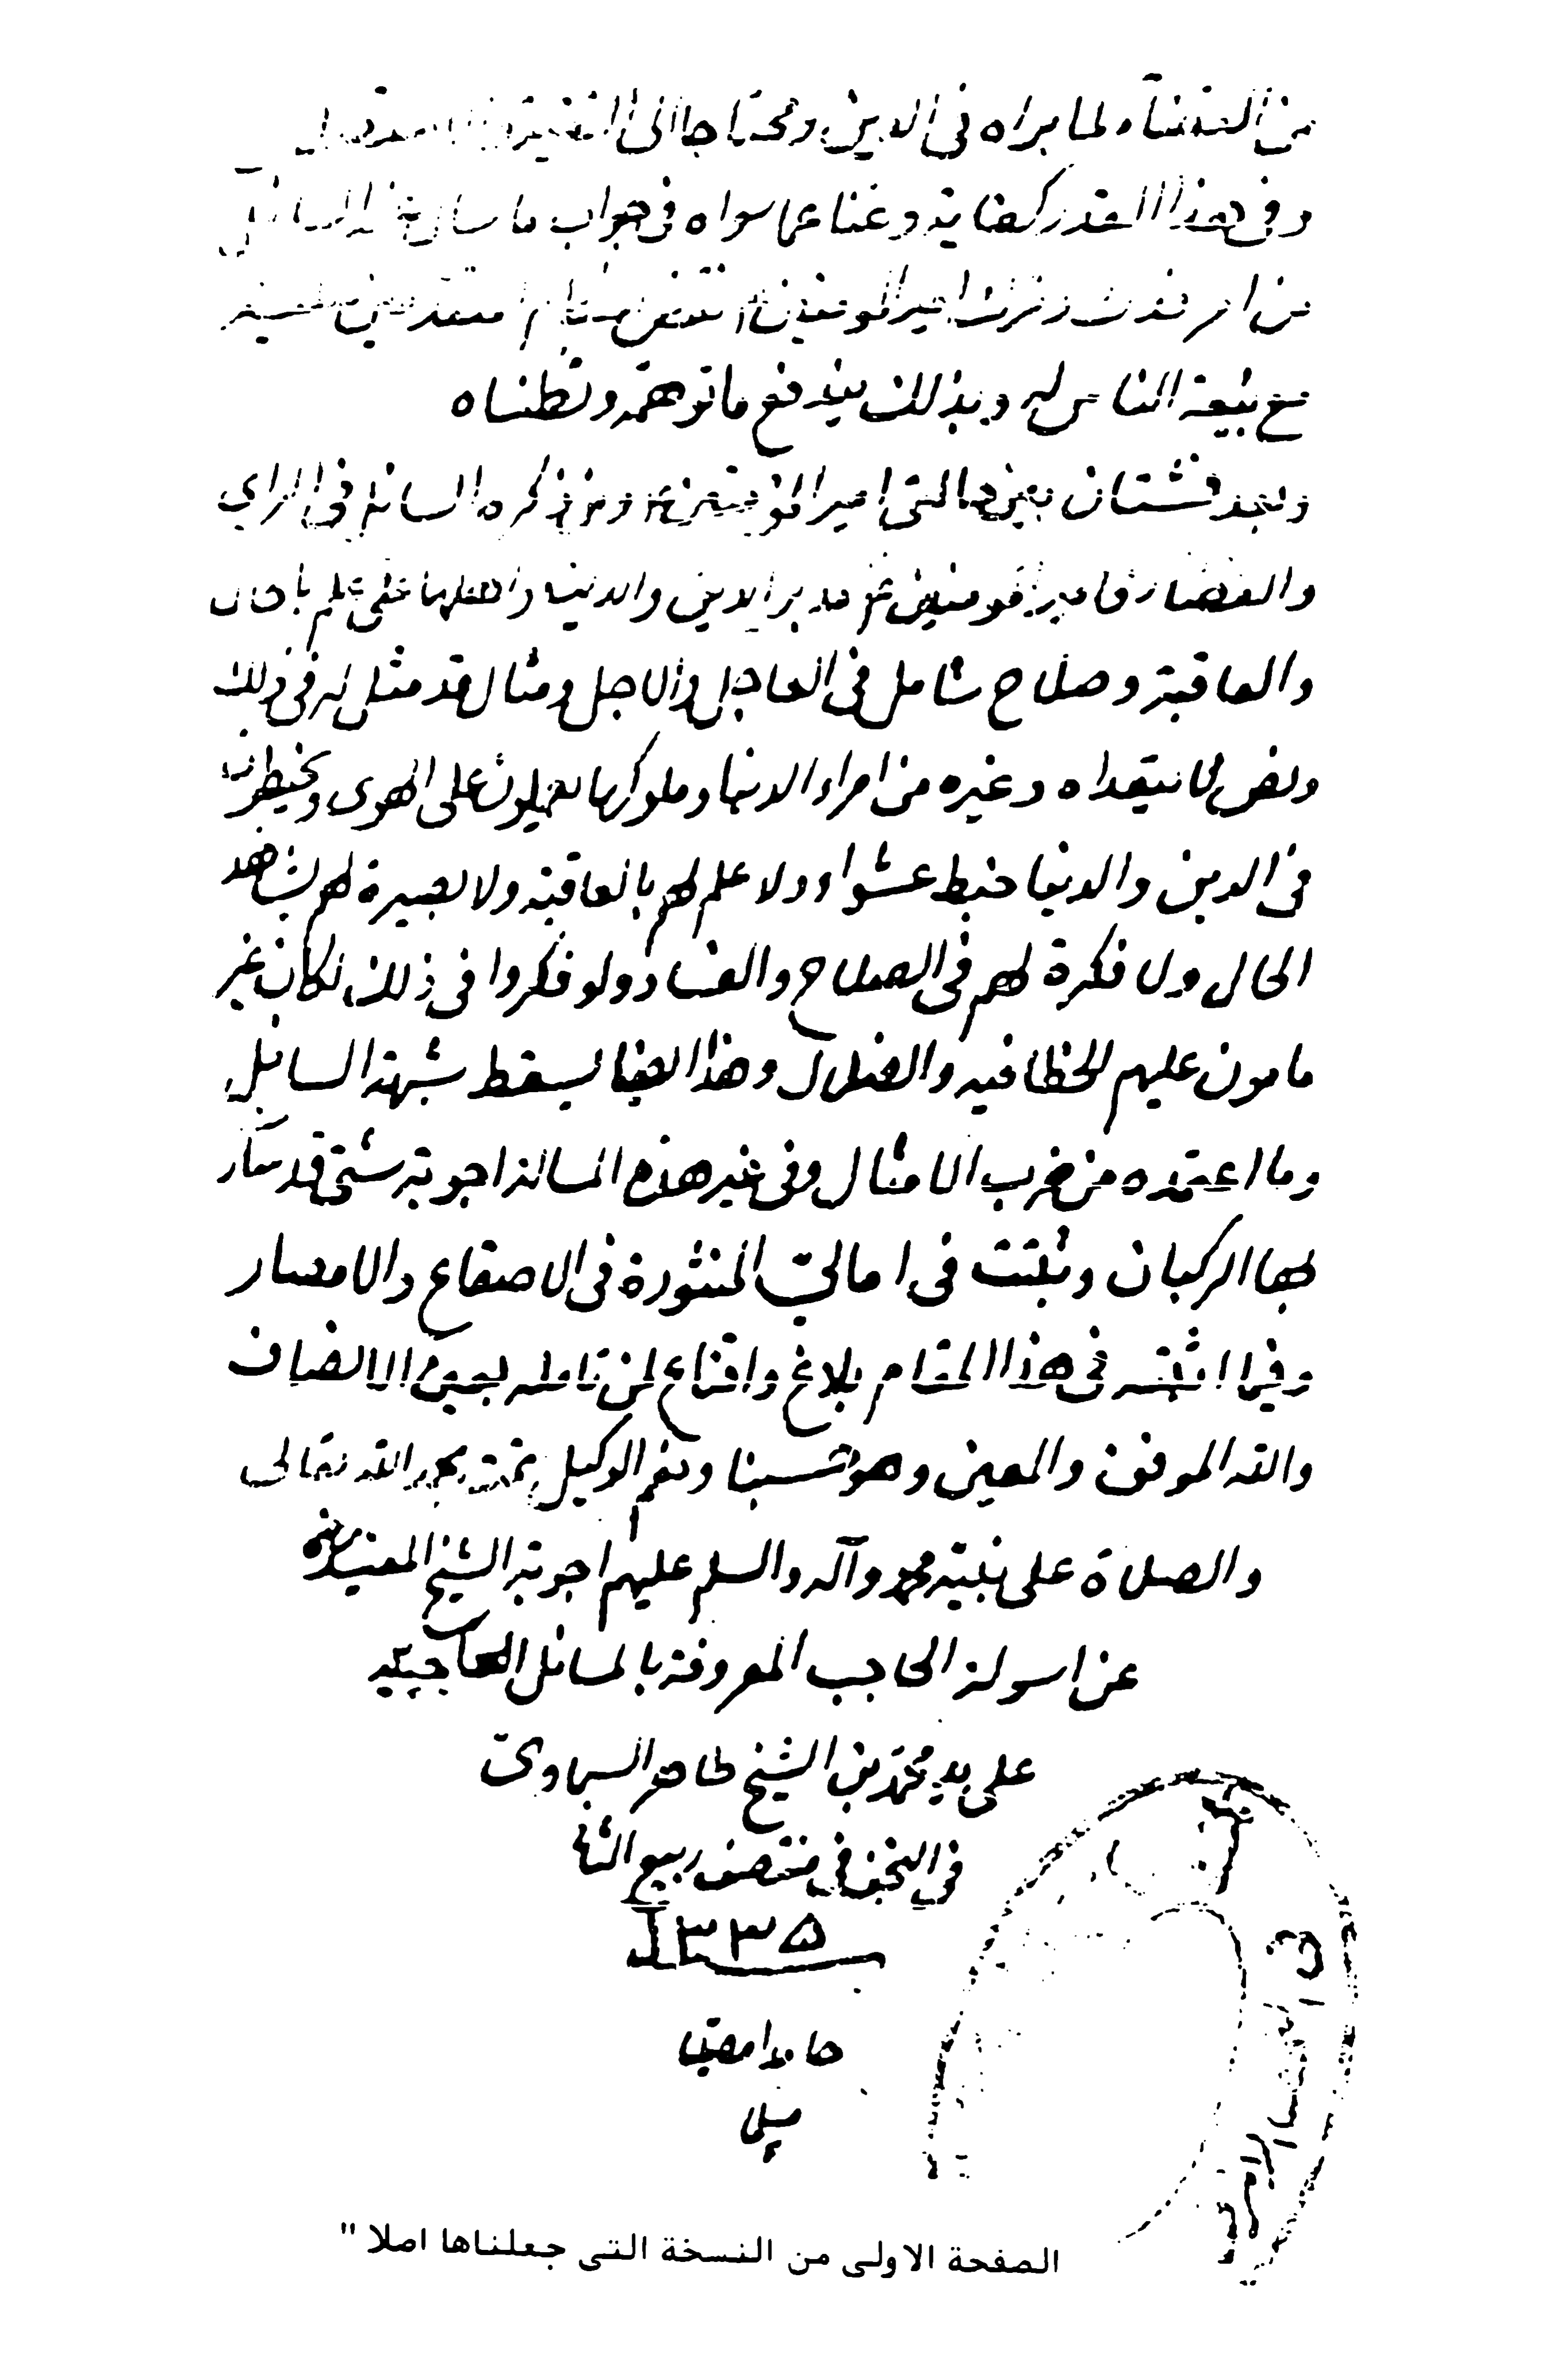 من القضاء لما يراه في الدين ومحتاجا الى
وفي هذا القدر كفاية وغنا عما سواه في جواب ما سال عنه السائل
من امير المومنين
مع بيعة الناس له وبذلك يندفع ما توهمه وتظناه
وبعد فشتان بين حالتى امير المؤمنين ومن ذكره السائل في الراي
والدين والدنيا واهلهما على علم بالحال
والعاقبة وصلاح شامل في العاجل والاجل ومثال قد مثل له في ذلك
ونص لا يتعداه وغيره من امراء الدنيا وملوكها يعملون على الهوى ويخبطون
في الدين والدنيا خبط عشواء ولا علم لهم بالعاقبة ولا بصيرة لهم بشاهد
الحال ولا فكرة لهم في الصلاح والفساد ولو فكروا في ذلك لكان غير
مامون عليهم الخطا فيه والضلال وهذا ايضا يسقط شبهة السايل
وما اعتمده من ضرب الامثال وفي غير هذه المسالة اجوبة شتى قد سار
بها الركبان وثبتت في امالي المنثورة في الاصقاع والامصار
وفيما اثبته في هذا المقام بلاغ واقناع لمن تامله بعين الانصاف
والله الموفق والمعين وهو حسبنا ونعم الوكيل تمت بحمد الله تعالى
والصلاة على نبيه محمد وآله والسلم عليهم اجوبة الشيخ المفيد
عن اسولة الحاجب المعروفة بالمسائل الحاجبيه
على يد محمد بن الشيخ طاهر السماوي
في النجف في منتصف ربيع الثاني
١٣٣٥
حامدا مصليا
الصفحة الاولى من النسخة التى جعلناها اصلا "